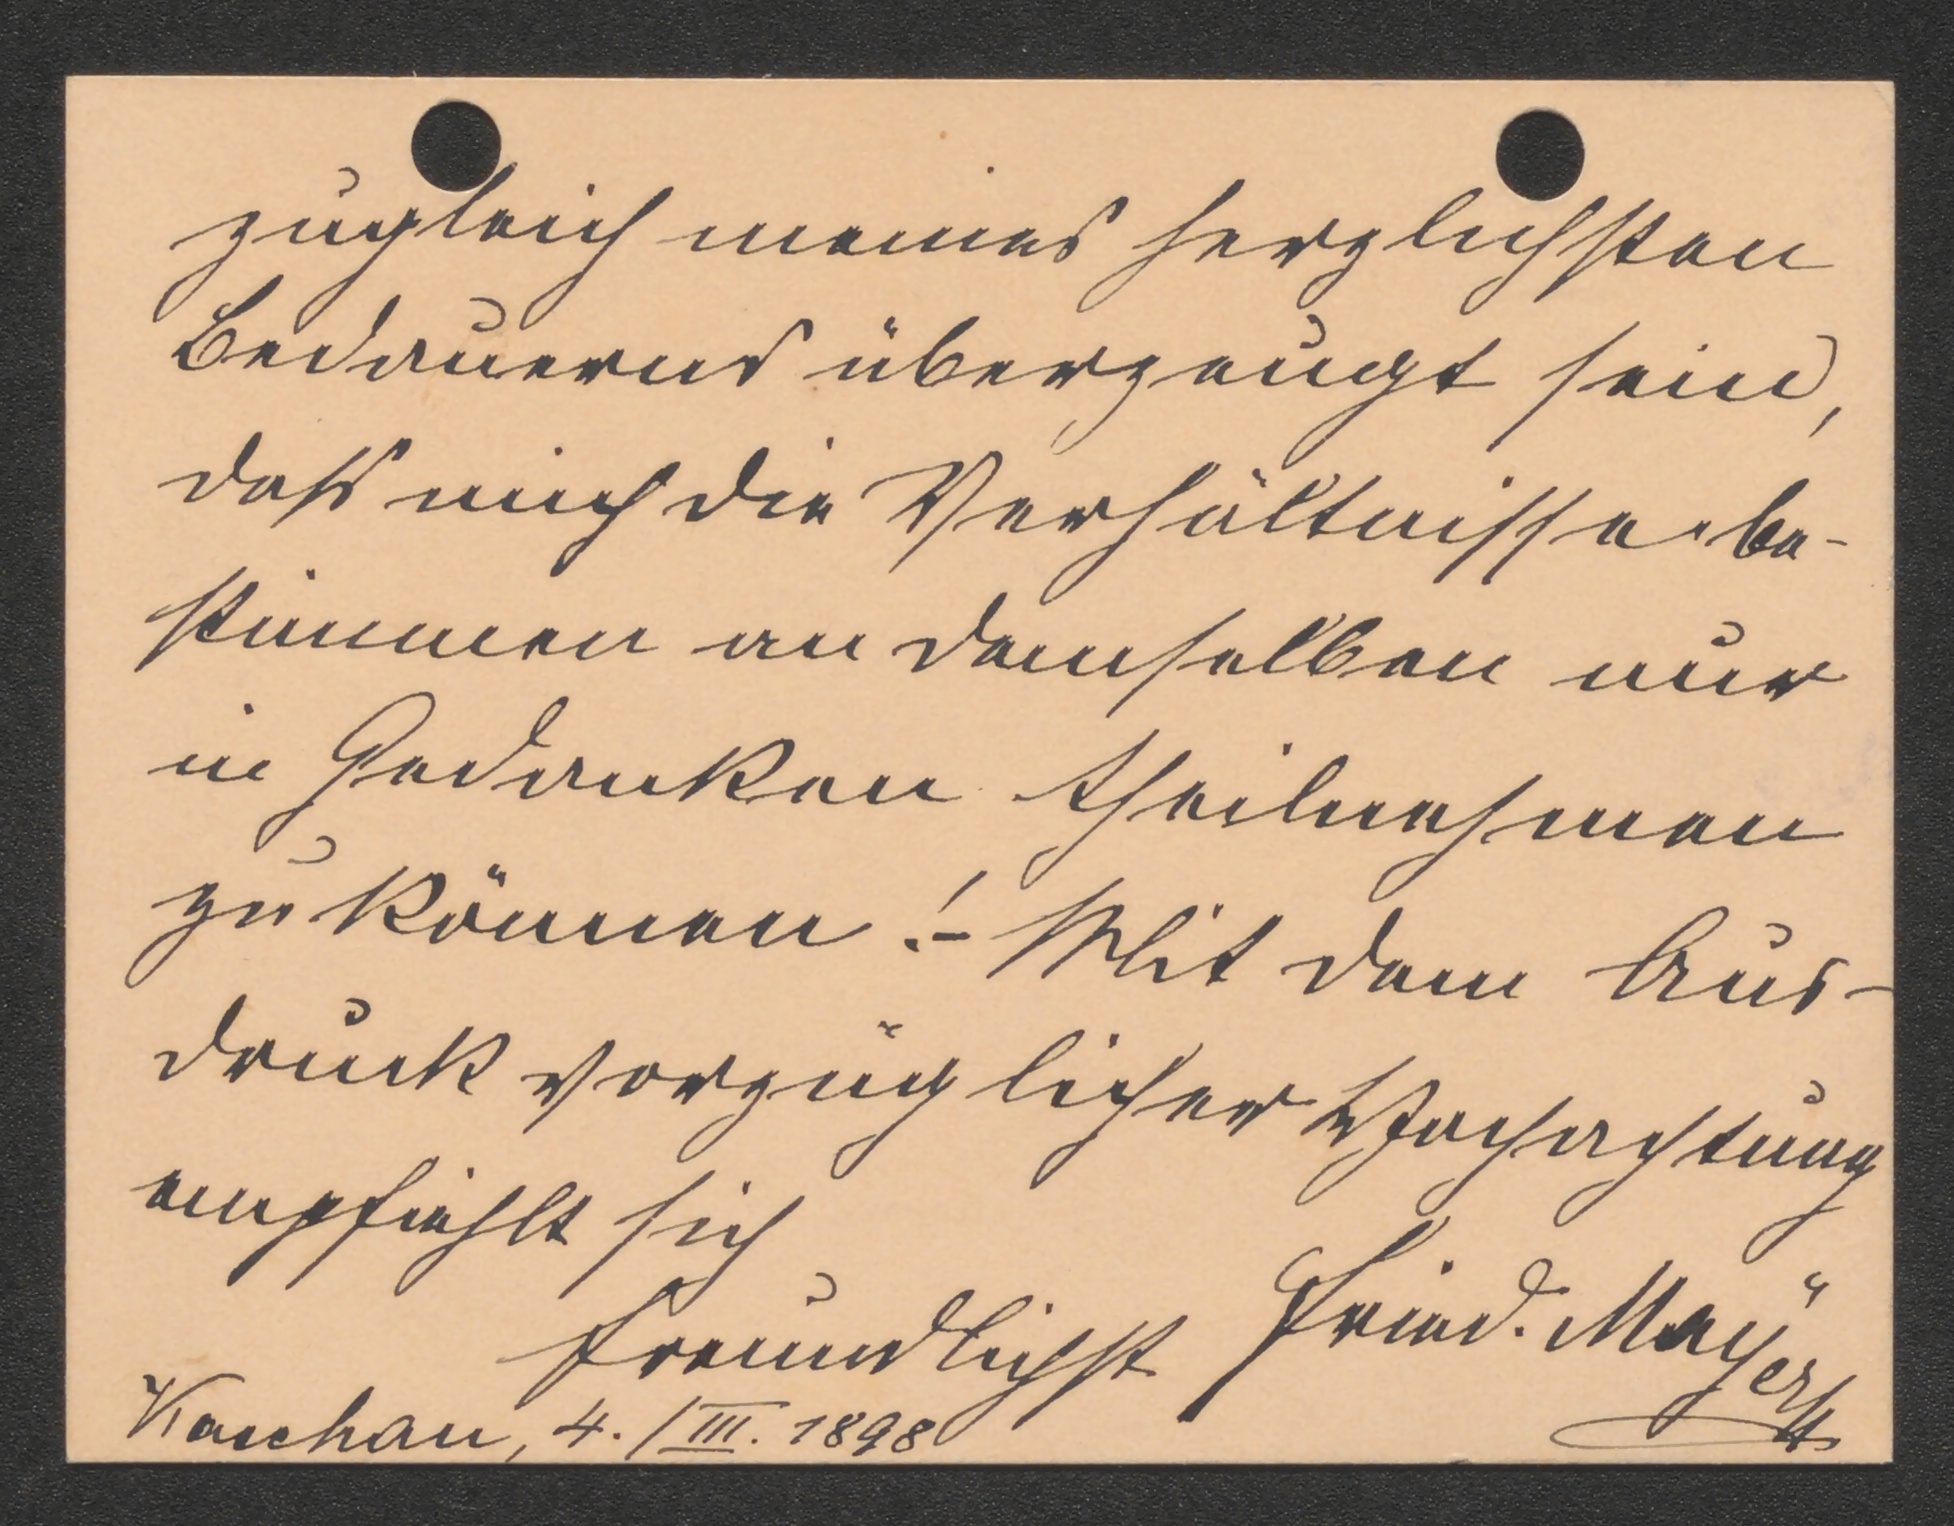 zugleich meines herzlichsten
Bedauerns überzeugt sein,
daß mich die Verhältnisse be-
stimmen an demselben nur
in Gedanken theilnehmen
zu können! – Mit dem Aus-
druck vorzüglicher Hochachtung
empfiehlt sich
freundlichst Fried. Mayer
Kaschau, 4./III. 1898